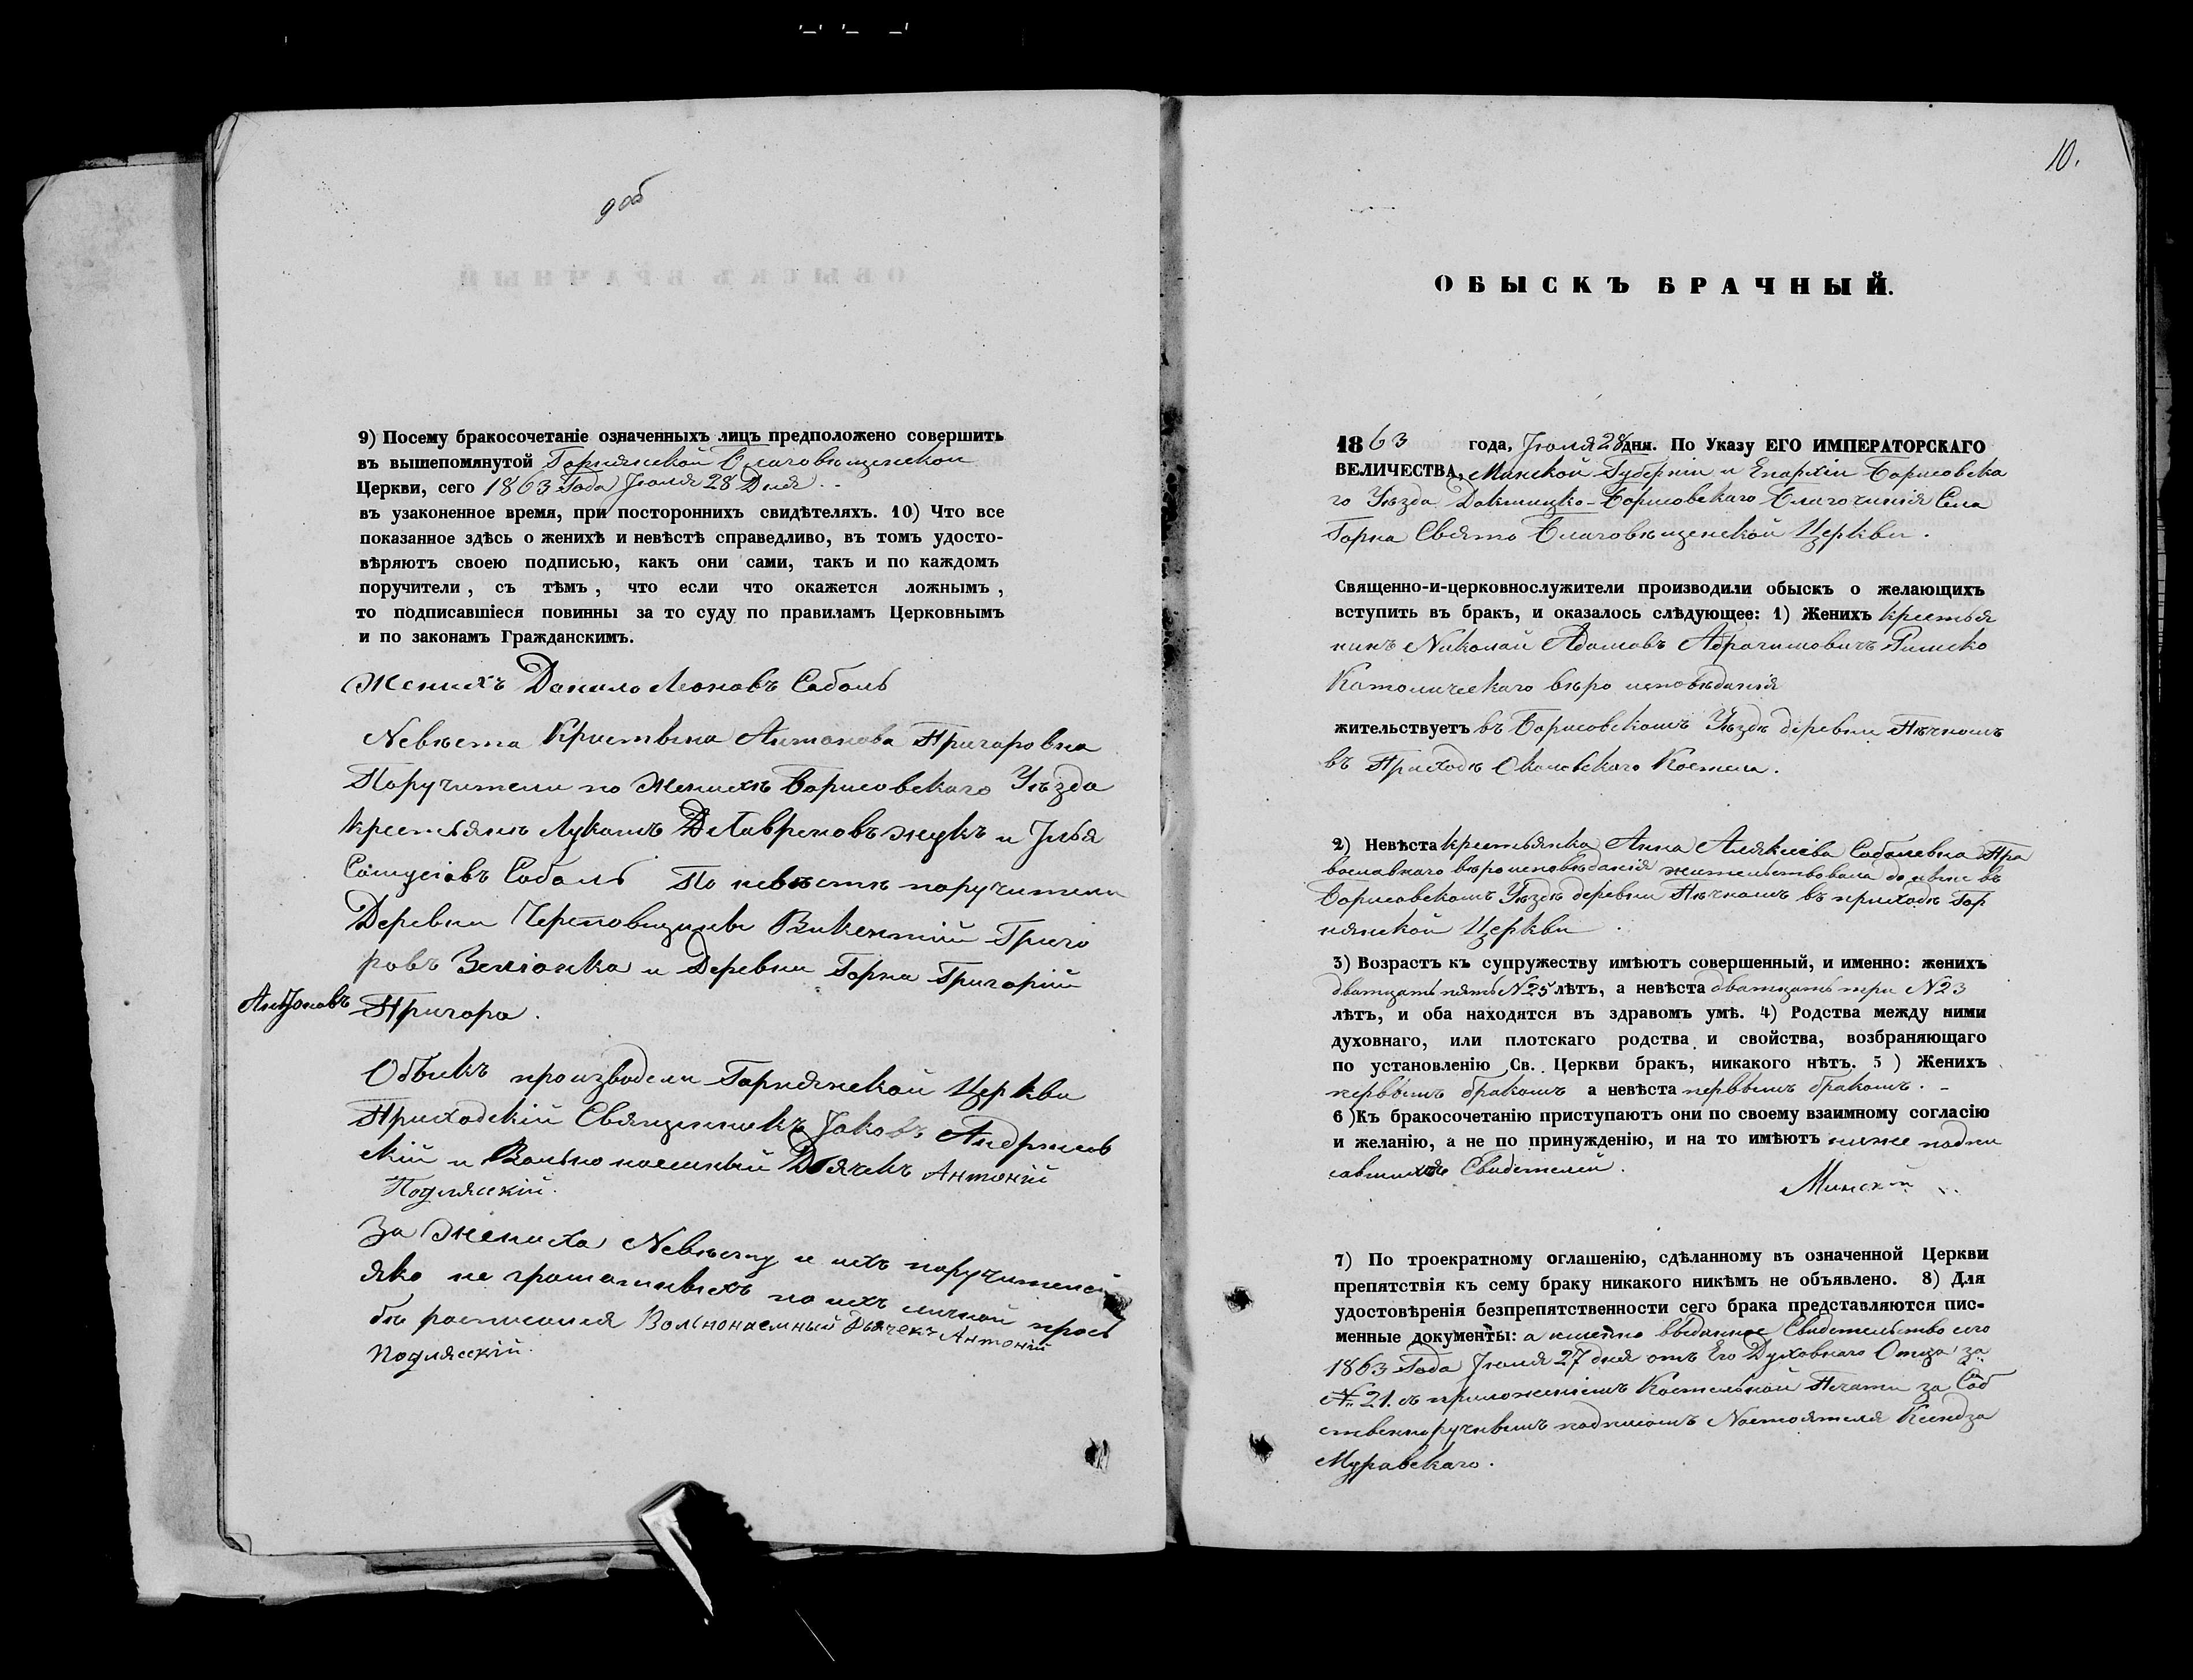 9 об
9) Посему бракосочетаніе означенныхъ лицъ предположено совершить
въ вышепомянутой Горнянской Благовѣщенской
Церкви, сего 1863 Года Іюля 28 Дня
въ узаконенное время, при постороннихъ свидѣтеляхъ. 10) Что все
показанное здѣсь о женихѣ и невѣстѣ справедливо, въ томъ удосто-
вѣряютъ своею подписью, какъ они сами, такъ и по каждомъ
поручители, съ тѣмъ, что если что окажется ложнымъ,
то подписавшіеся повинны за то суду по правиламъ Церковнымъ
и по законамъ Гражданскимъ.
Женихъ Данило Леоновъ Соболь
Невѣста Кристына Антонова Пригаровна
Поручители по Женихѣ Борисовскаго Уѣзда
крестьянъ Лукашъ Лавреновъ жукъ и Илья
Соболь По невѣстѣ поручители
Деревни Викентій Григо
ровъ Зеліонка и Деревни Горна Григорій
Антоновъ Пригора.
Обыскъ производели Горнянской Церкви
Приходскій Священникъ Іаковъ
скій и Вольнонаемный Дьячекъ Антоній
Подлясскій.
За Жениха Невѣсту и ихъ поручителей
яко не грамотныхъ по ихъ личной прось
бѣ росписался Вольнонаемный Дьячекъ Антоній
Подлясскій.
10.
ОБЫСКЪ БРАЧНЫЙ.
1863 года, Іюля 28 дня. По Указу ЕГО ИМПЕРАТОРСКАГО
ВЕЛИЧЕСТВА, Минской Губерніи и Епархіи Борисовска
го Уѣзда Докшицко-Борисовскаго Благочинія Села
Горна Свято Благовѣщенской Церкви.
Священно-и-церковнослужители производили обыскъ о желающихъ
вступить въ бракъ, и оказалось слѣдующее: 1) Женихъ крестья
нинъ Николай Адамовъ Абрагимовичъ Римско
Католическаго вѣро исповѣданія
жительствуетъ въ Борисовскомъ Уѣздѣ деревни Пѣчномъ
въ Приходѣ Костела.
2) Невѣста крестьянка Анна Соболевна Пра
вославнаго вѣроисповѣданія жительствовала до нынѣ въ
Борисовскомъ Уѣздѣ деревни Пѣчномъ въ приходѣ Гор
нянской Церкви
3) Возрастъ къ супружеству имѣютъ совершенный, и именно: женихъ
дватцать пять №25 лѣтъ, а невѣста дватцать три №23
лѣтъ, и оба находятся въ здравомъ умѣ. 4) Родства между ними
духовнаго, или плотскаго родства и свойства, возбраняющаго
по установленію Св. Церкви бракъ, никакого нѣтъ. 5) Женихъ
первымъ бракомъ а невѣста первымъ бракомъ. -
6) Къ бракосочетанію приступаютъ они по своему взаимному согласію
и желанію, а не по принужденію, и на то имѣютъ ниже подпи
савшихся Свидетелей.
7) По троекратному оглашенію, сдѣланному въ означенной Церкви
препятствія къ сему браку никакого никѣмъ не объявлено. 8) Для
удостовѣренія безпрепятственности сего брака представляются пис-
менные документы: а именно выданное Свидетельство сего
1863 Года Іюля 27 дня отъ Его Духовнаго Отца за
№ 21. съ приложеніемъ Костельной Печати за Соб
ственноручнымъ подписомъ Настоятеля Ксендза
Муравскаго.